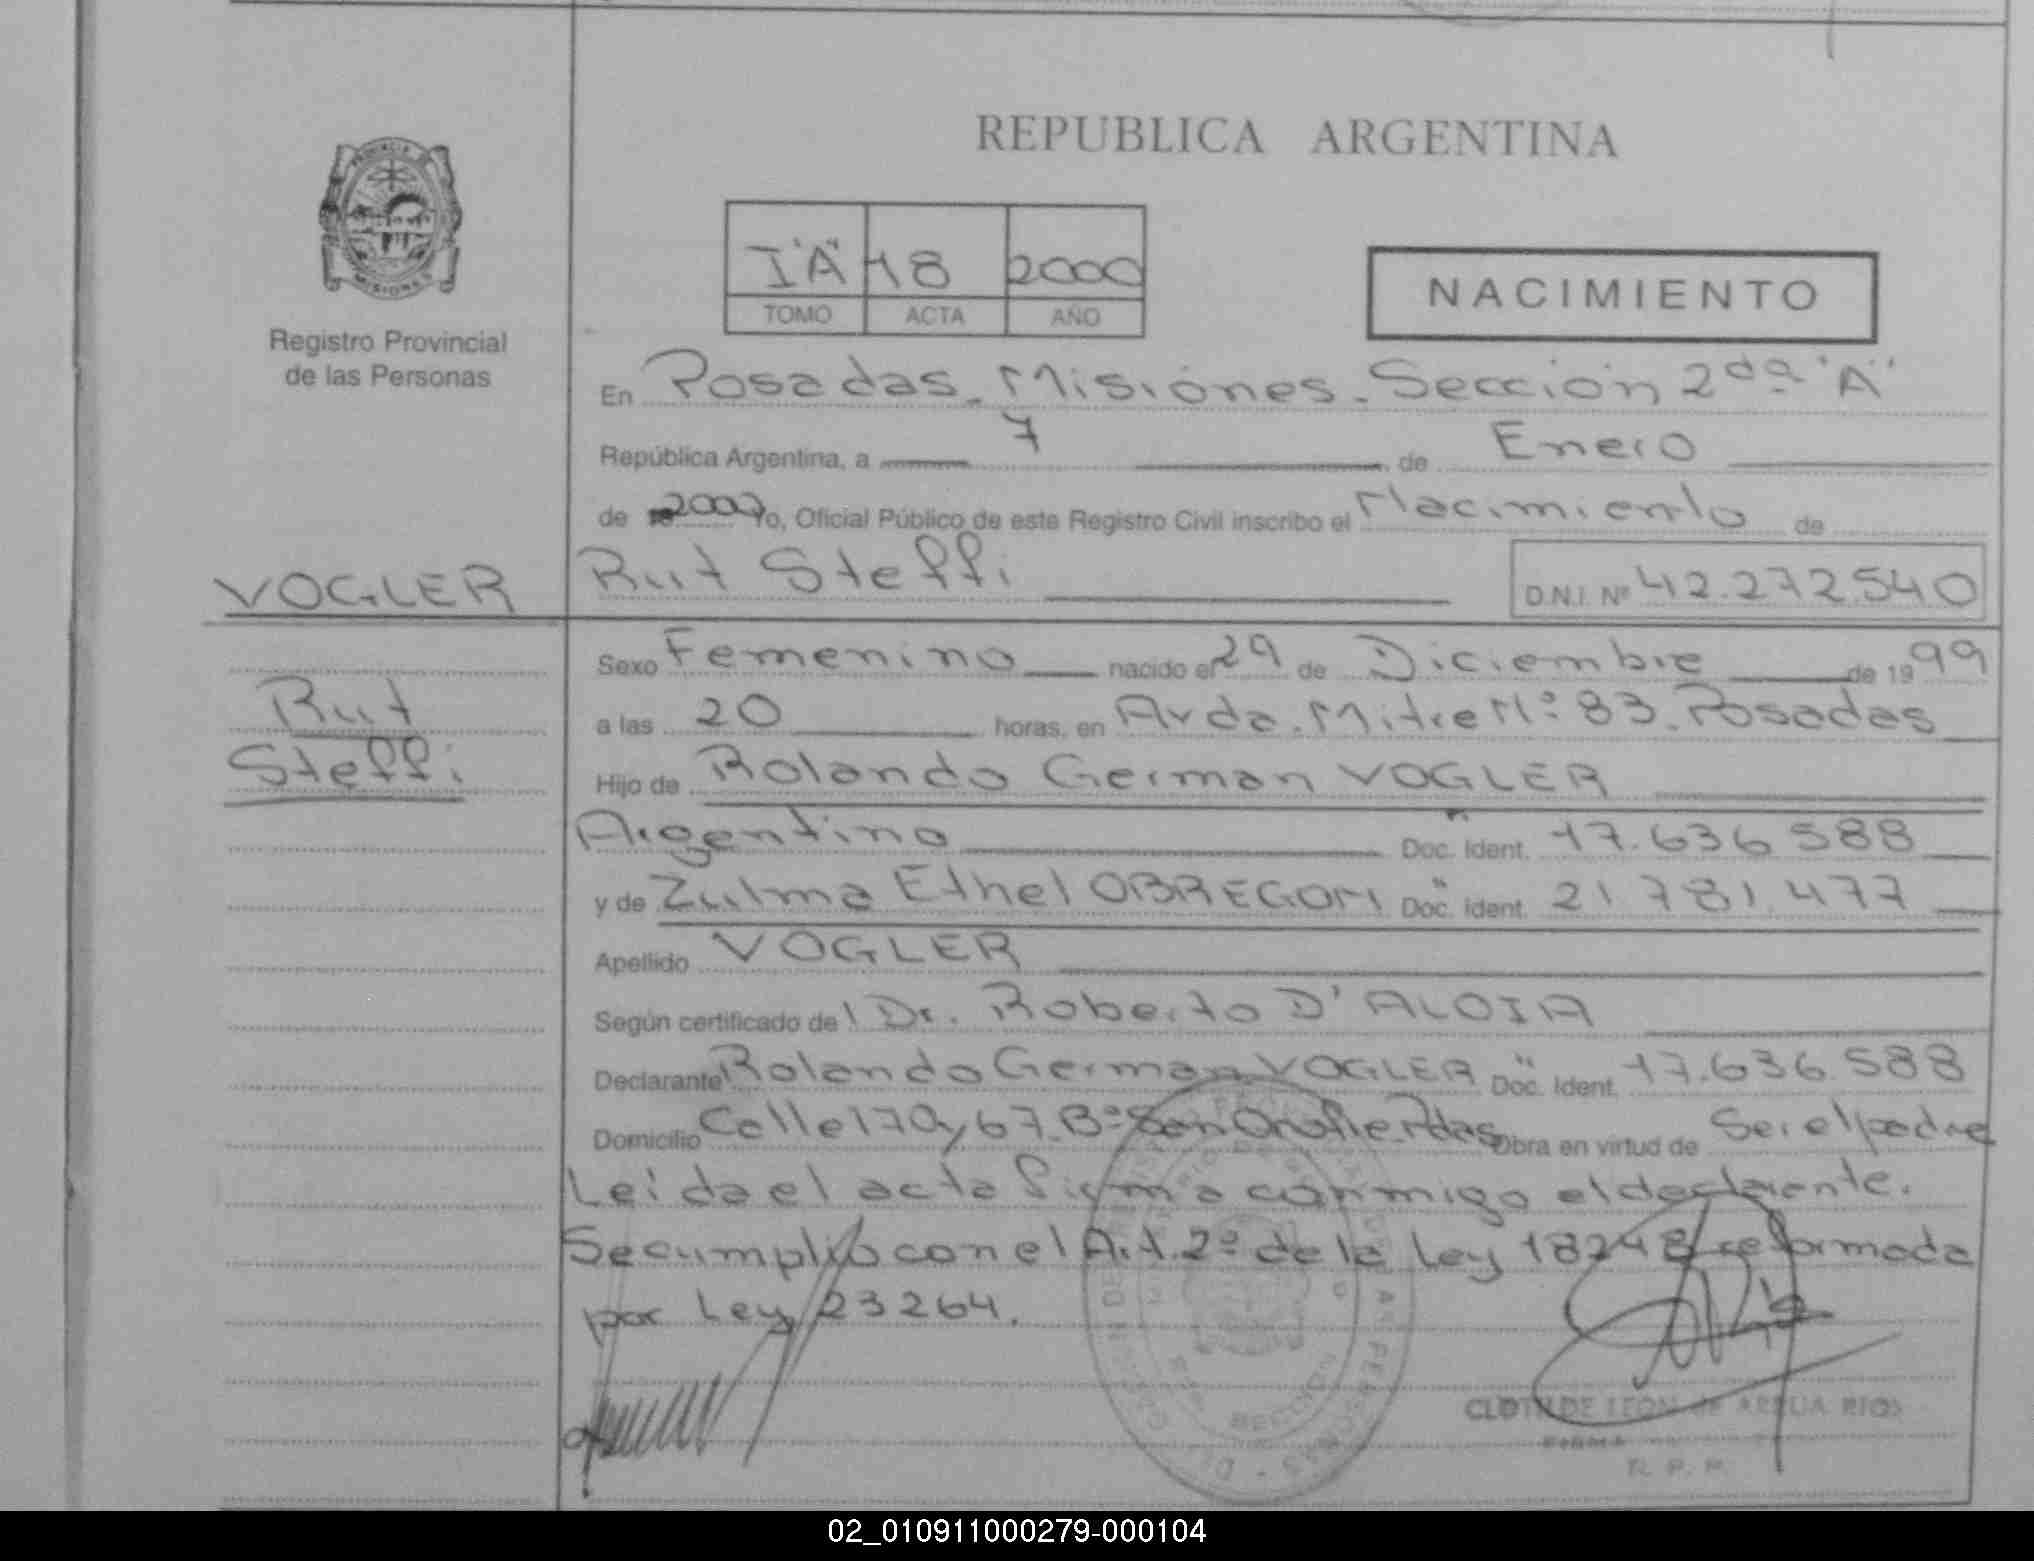 REPUBLICA ARGENTINA
PROVINCIA DE
MISIONES
Registro Provincial
de las Personas
I "A" 18 2000
TOMO ACTA AÑO
NACIMIENTO
En Posadas. Misiones. Sección 2da "A"
República Argentina, a 7 de Enero
de 2000 Yo, Oficial Público de este Registro Civil inscribo el Nacimiento de
VOGLER
Rut Steffi D.N.I. Nº 42.272.540
Rut
Steffi
Sexo Femenino nacido el 29 de Diciembre de 1999
a las 20 horas, en Avda. Mitre Nº 83. Posadas
Hijo de Rolando German VOGLER
Argentino Doc. Ident. 17.636.588
y de Zulma Ethel OBREGON Doc. Ident. 21.781.477
Apellido VOGLER
Según certificado del Dr. Roberto D'ALOIA
Declarante Rolando German VOGLER Doc. Ident. 17.636.588
Domicilio Calle 170 y 67. Bº San Onofre Pdas Obra en virtud de Ser el padre
Leída el acta firma conmigo el declarante.
Se cumplió con el Art. 2º de la Ley 18248 reformada
por Ley 23264.
CLOTILDE LEON de
FIRMA
R. P. P.
02_010911000279-000104